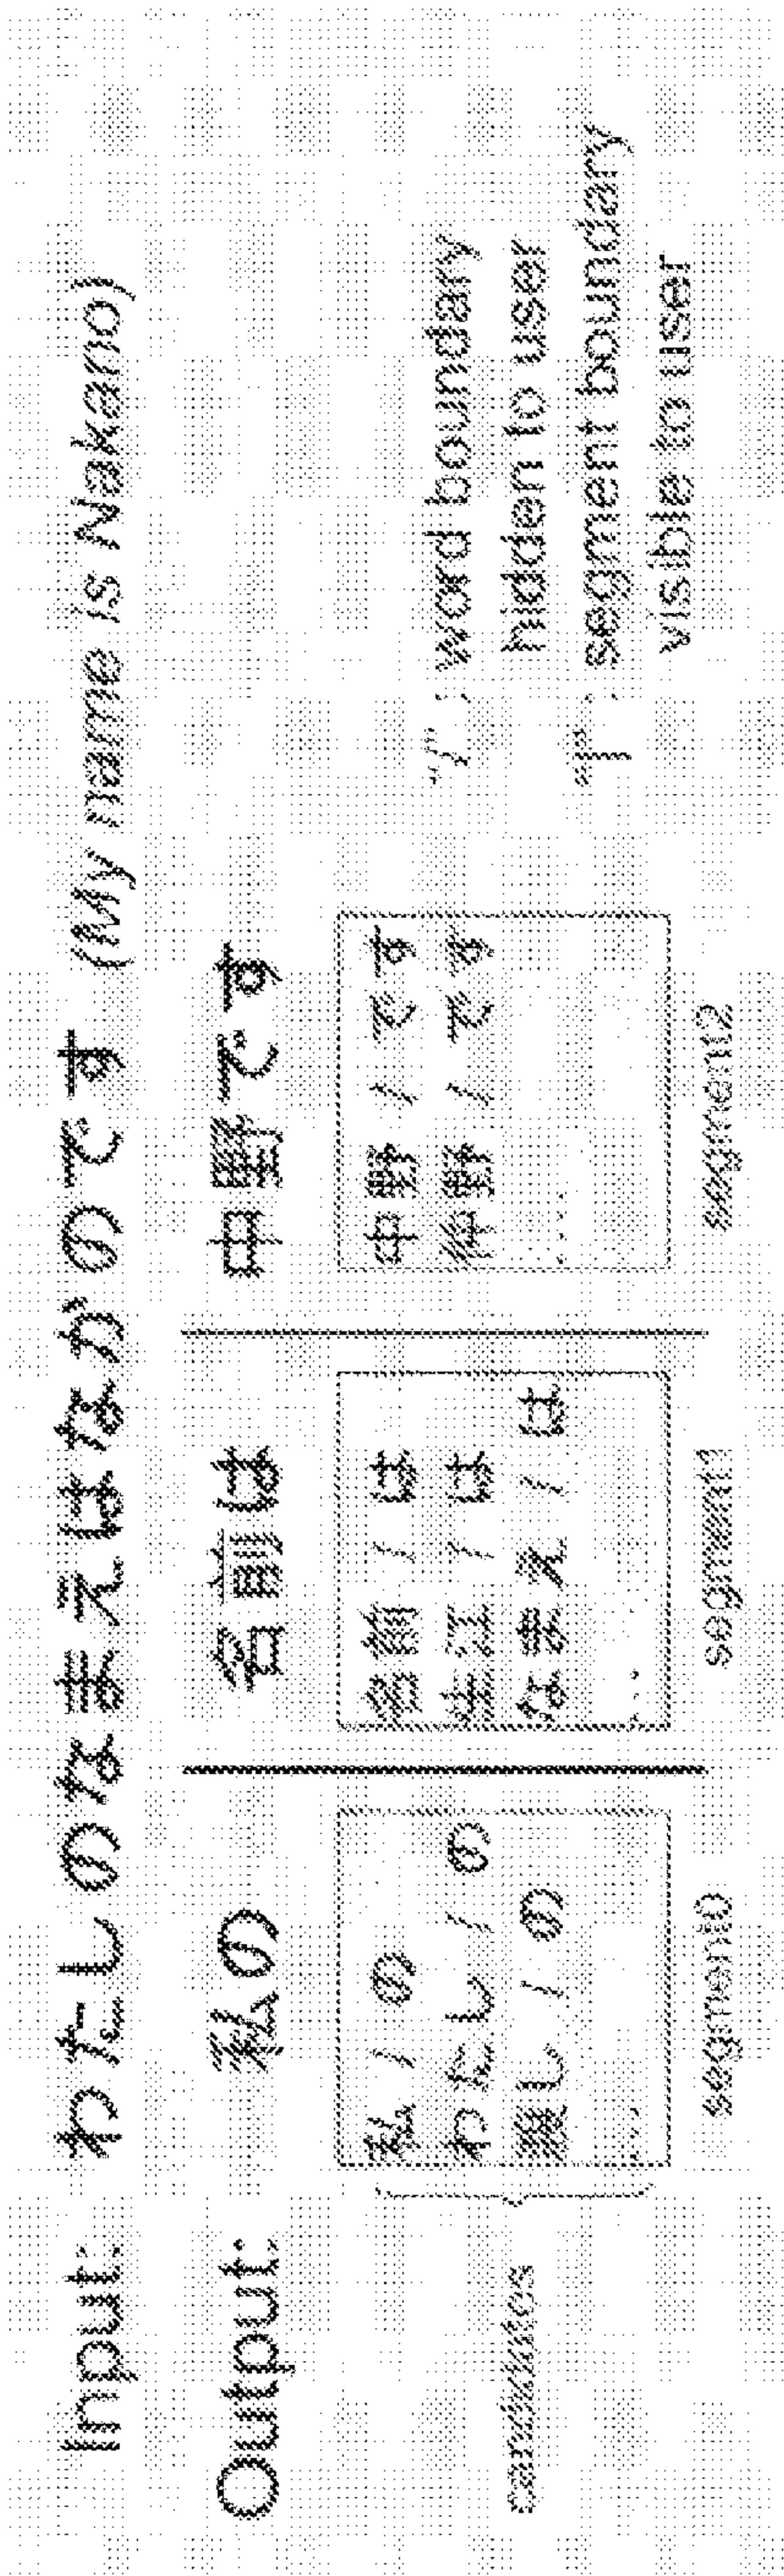 Input: わたしのなまえはなかのです (My name is Nakano)
Output: 私の 名前は 中野です
candidates
私 / の
わたし / の
渡し / の
...
segment0
名前 / は
生江 / は
なまえ / は
...
segment1
中野 / です
仲野 / です
...
segment2
"/" : word boundary
hidden to user
"|" : segment boundary
visible to user